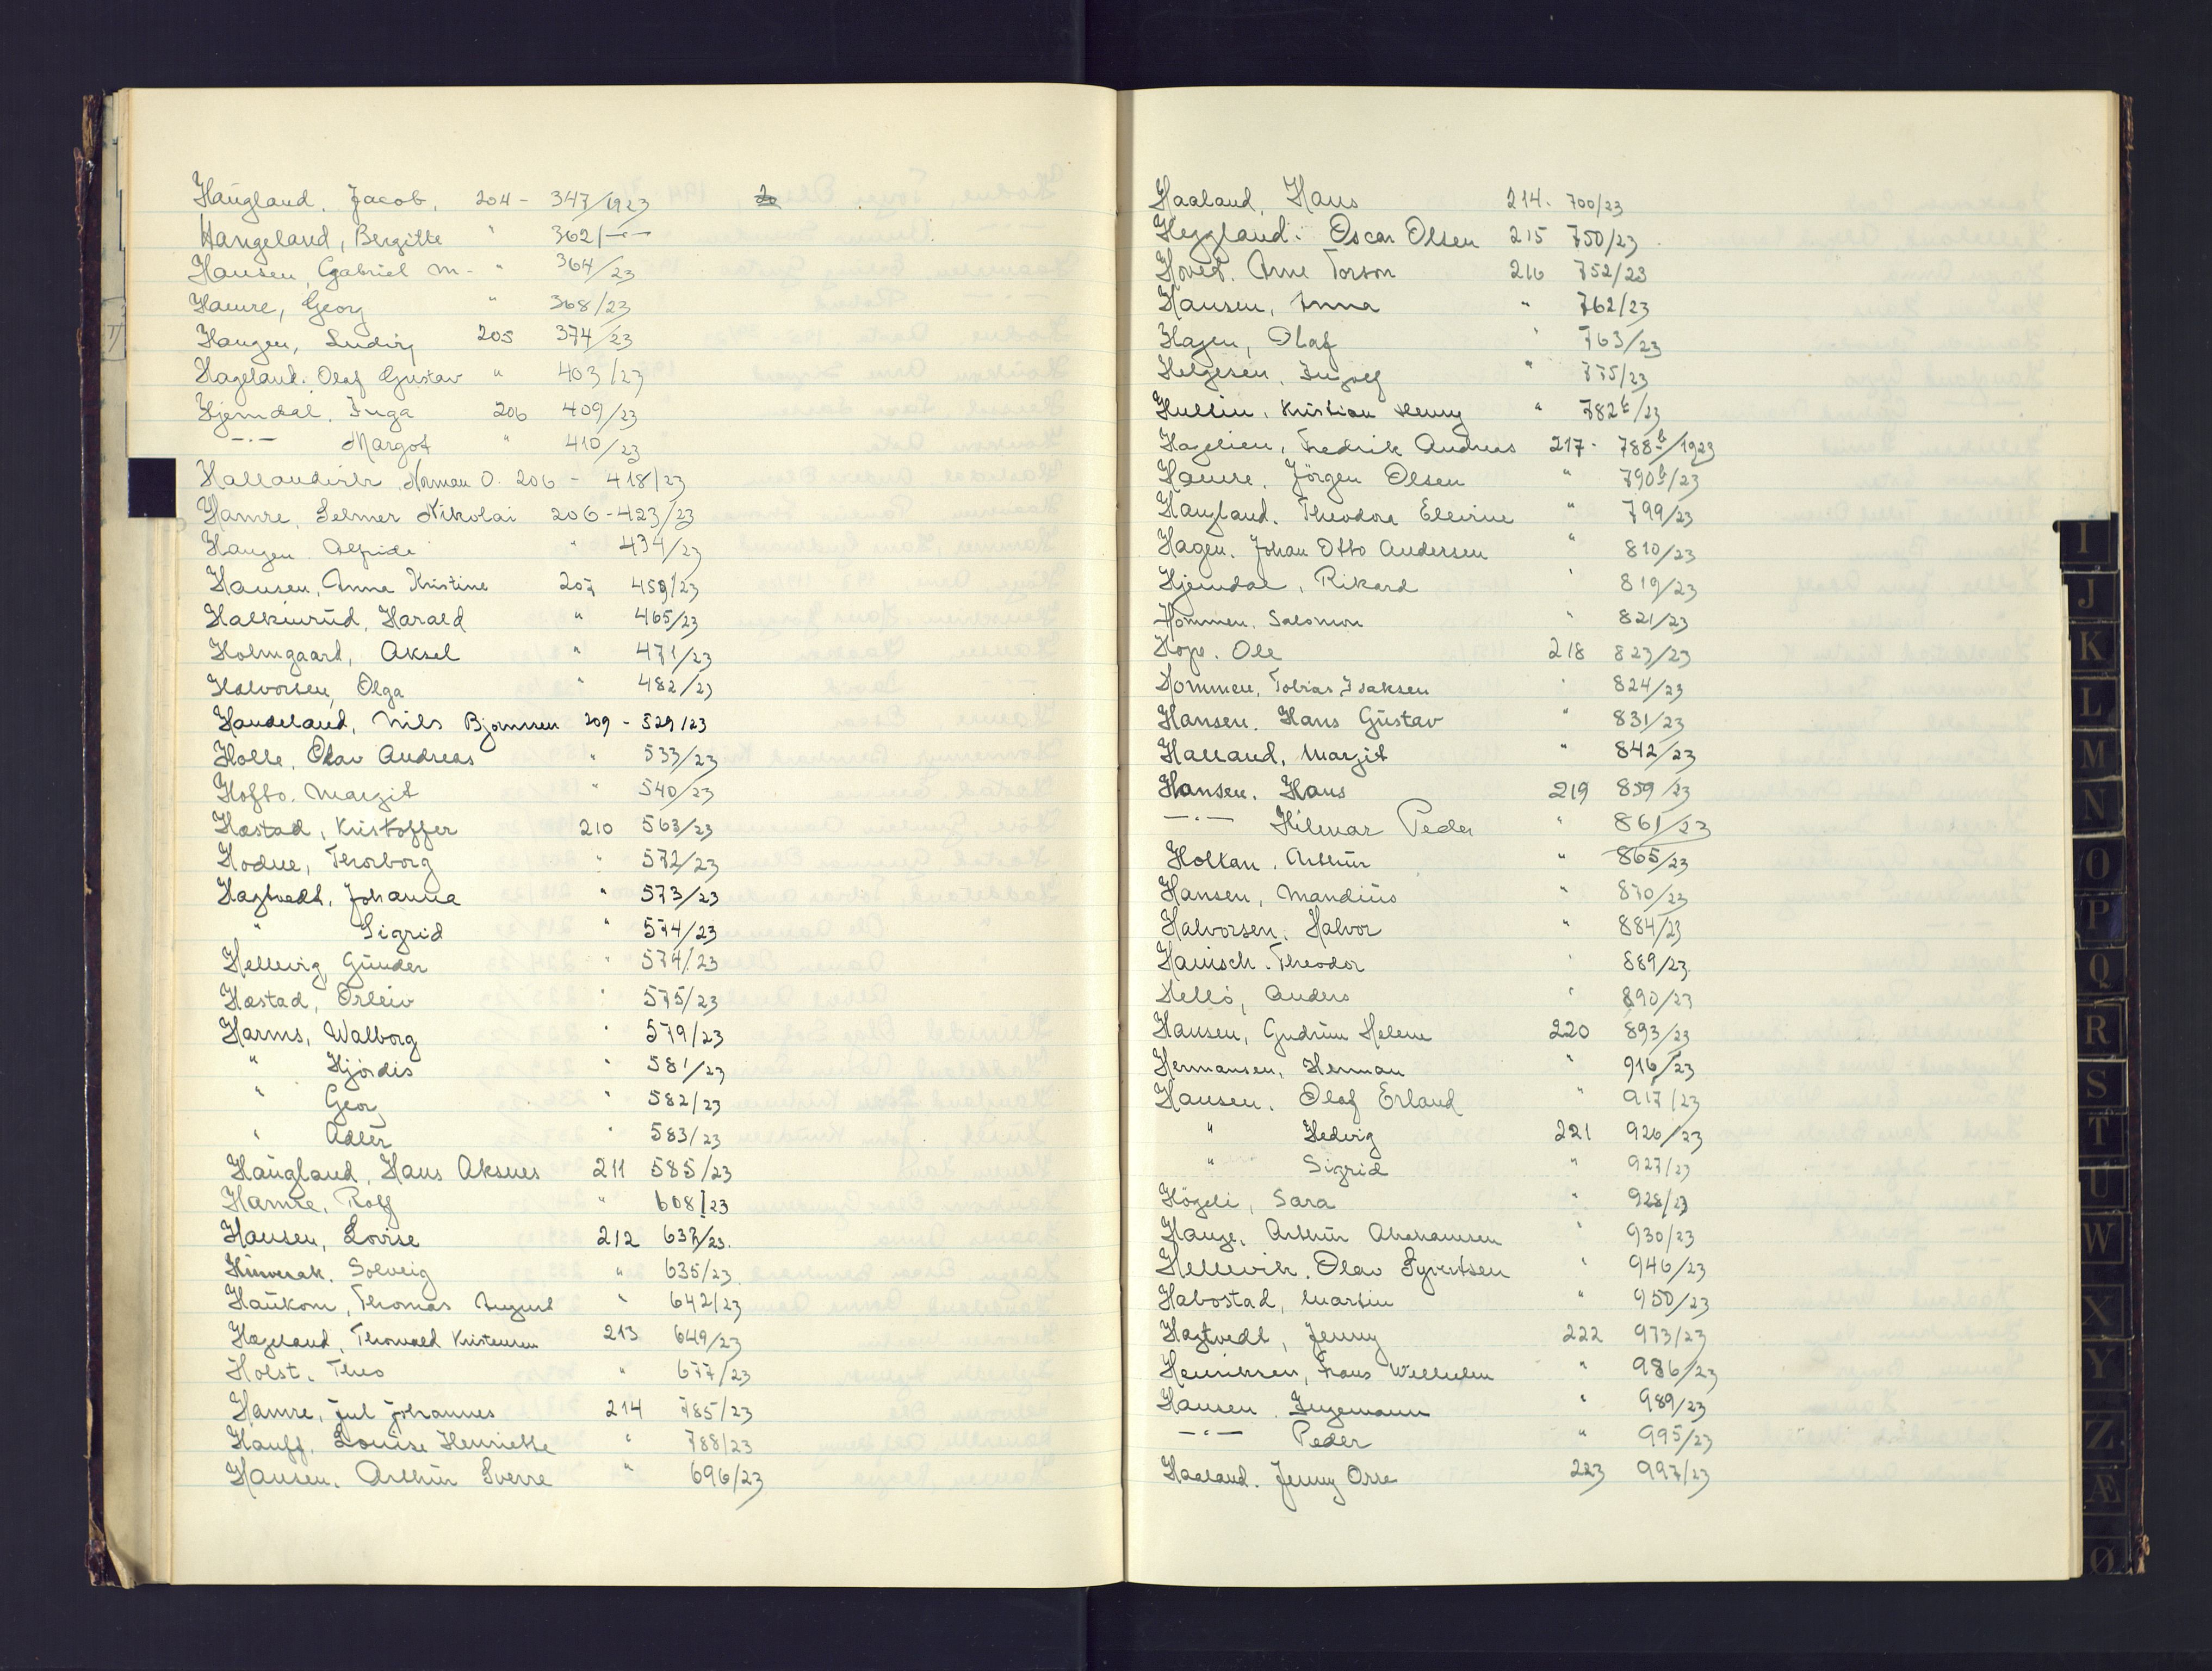 Haugland, Jacob, 204 - 347/1923
Hangeland, Bergitte " 362/-·-
Hansen, Gabriel M. - " 364/23
Hamre, Georg " 368/23
Haugen, Ludvig 205 374/23
Hageland, Olaf Gustav " 403/23
Hjemdal, Inga 206 409/23
-·- Margot " 410/23
Hallandvik Norman O. 206 - 418/23
Hamre, Selmer Nikolai 206 - 423/23
Haugen Alfride " 434/23
Hansen, Anna Kristine 207 459/23
Halkinrud, Harald " 465/23
Holmgaard, Aksel " 471/23
Halvorsen, Olga " 482/23
Haudeland, Nils Bjornsen 209 - 529/23
Holte, Olav Andreas " 533/23
Hofto. Margit " 540/23
Hæstad, Kristoffer 210 563/23
Hodne, Thorborg " 572/23
Hagtvedt, Johanna " 573/23
" Sigrid " 574/23
Hellevig Gunder " 574/23
Hæstad, Orleiv " 575/23
Harms, Walborg " 579/23
" Hjördis " 581/23
" Georg " 582/23
" Adler " 583/23
Haugland, Hans Aksnes 211 585/23
Hamre, Rolf " 608/23
Hansen, Lovise 212 637/23.
Solveig " 635/23
Haukom, Thomas August " 642/23
Hageland, Thorvald Kristensen 213 649/23
Holst, Theo " 677/23
Hamre, Jul Johannes 214 785/23
Hauff, Louise Henriette " 788/23
Hansen. Arthur Sverre " 696/23
Haaland, Hans 214. 700/23
Heggland. Oscar Olsen 215 750/23
Hoved. Arne Torson 216 752/23
Hansen, Anna " 762/23
Hagen, Olaf " 763/23
Helgesen, Ingolf " 775/23
Hullin, Kristian Henry " 782 b/23
Hagelien, Fredrik Andreas 217 - 788 b/1923
Hamre, Jörgen Olsen " 790 b/23
Haugland. Theodora Elevine " 799/23
Hagen. Johan Otto Andersen " 810/23
Hjemdal, Rikard " 819/23
Hommen, Salomon " 821/23
Hope. Ole 218 823/23
Hommen, Tobias Isaksen " 824/23
Hansen. Hans Gustav " 831/23
Halland, Margit " 842/23
Hansen. Hans 219 859/23
-·- Hilmar Peder " 861/23
Holtan. Arthur " 865/23
Hansen, Mandius " 870/23
Halvorsen, Halvor " 884/23
Hanisch. Theodor " 889/23
Hellö, Anders " 890/23
Hansen, Gudrun Helene 220 893/23
Hermansen, Herman " 916/23
Hansen. Olaf Erland " 917/23
" Hedvig 221 926/23
" Sigrid " 927/23
Högeli, Sara " 928/23
Hauge. Arthur Abrahamsen " 930/23
Hellevik. Olav Syvertsen " 946/23
Habostad, Martin " 950/23
Hagtvedt, Jenny 222 973/23
Henriksen, Frans Wilhelm " 986/23
Hansen. Ingemann " 989/23
-·- Peder " 995/23
Haaland. Jenny Orre 223 997/23
I
J
K
L
M
N
O
P
Q
R
S
T
U
W
X
Y
Z
Æ
Ø